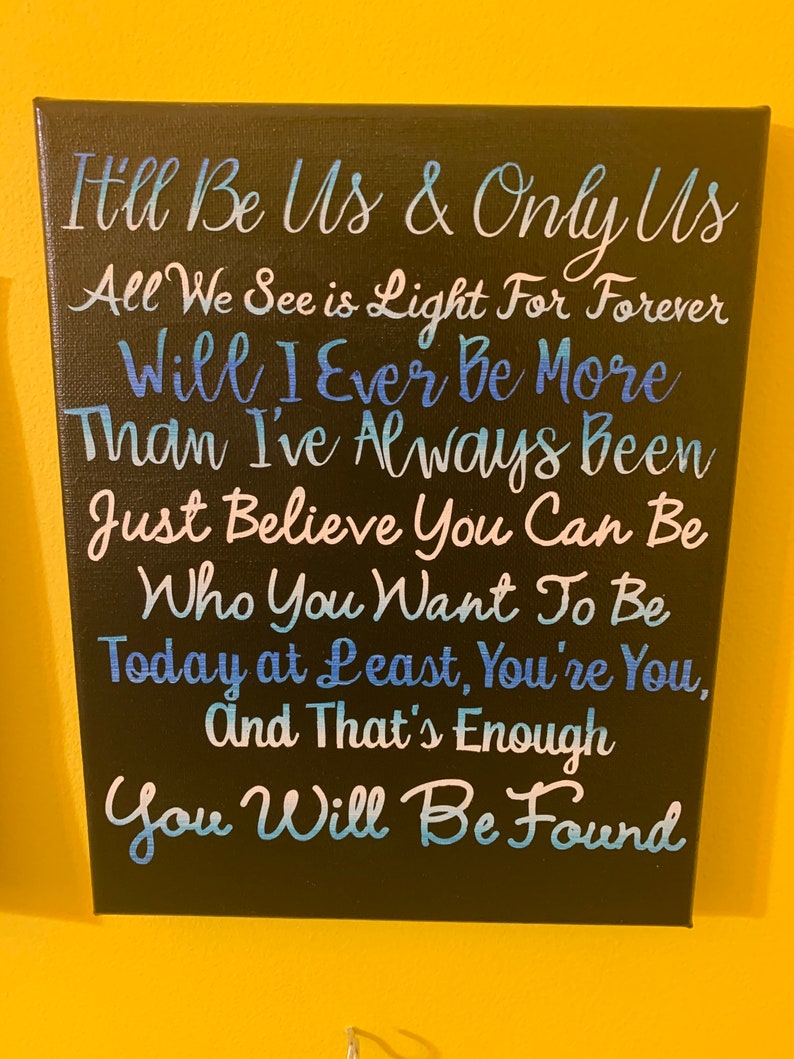 It'll Be Us & Only Us
All We See is Light For Forever
Will I Ever Be More
Than I've Always Been
Just Believe You Can Be
Who You Want To Be
Today at Least, You're You,
And That's Enough
You Will Be Found